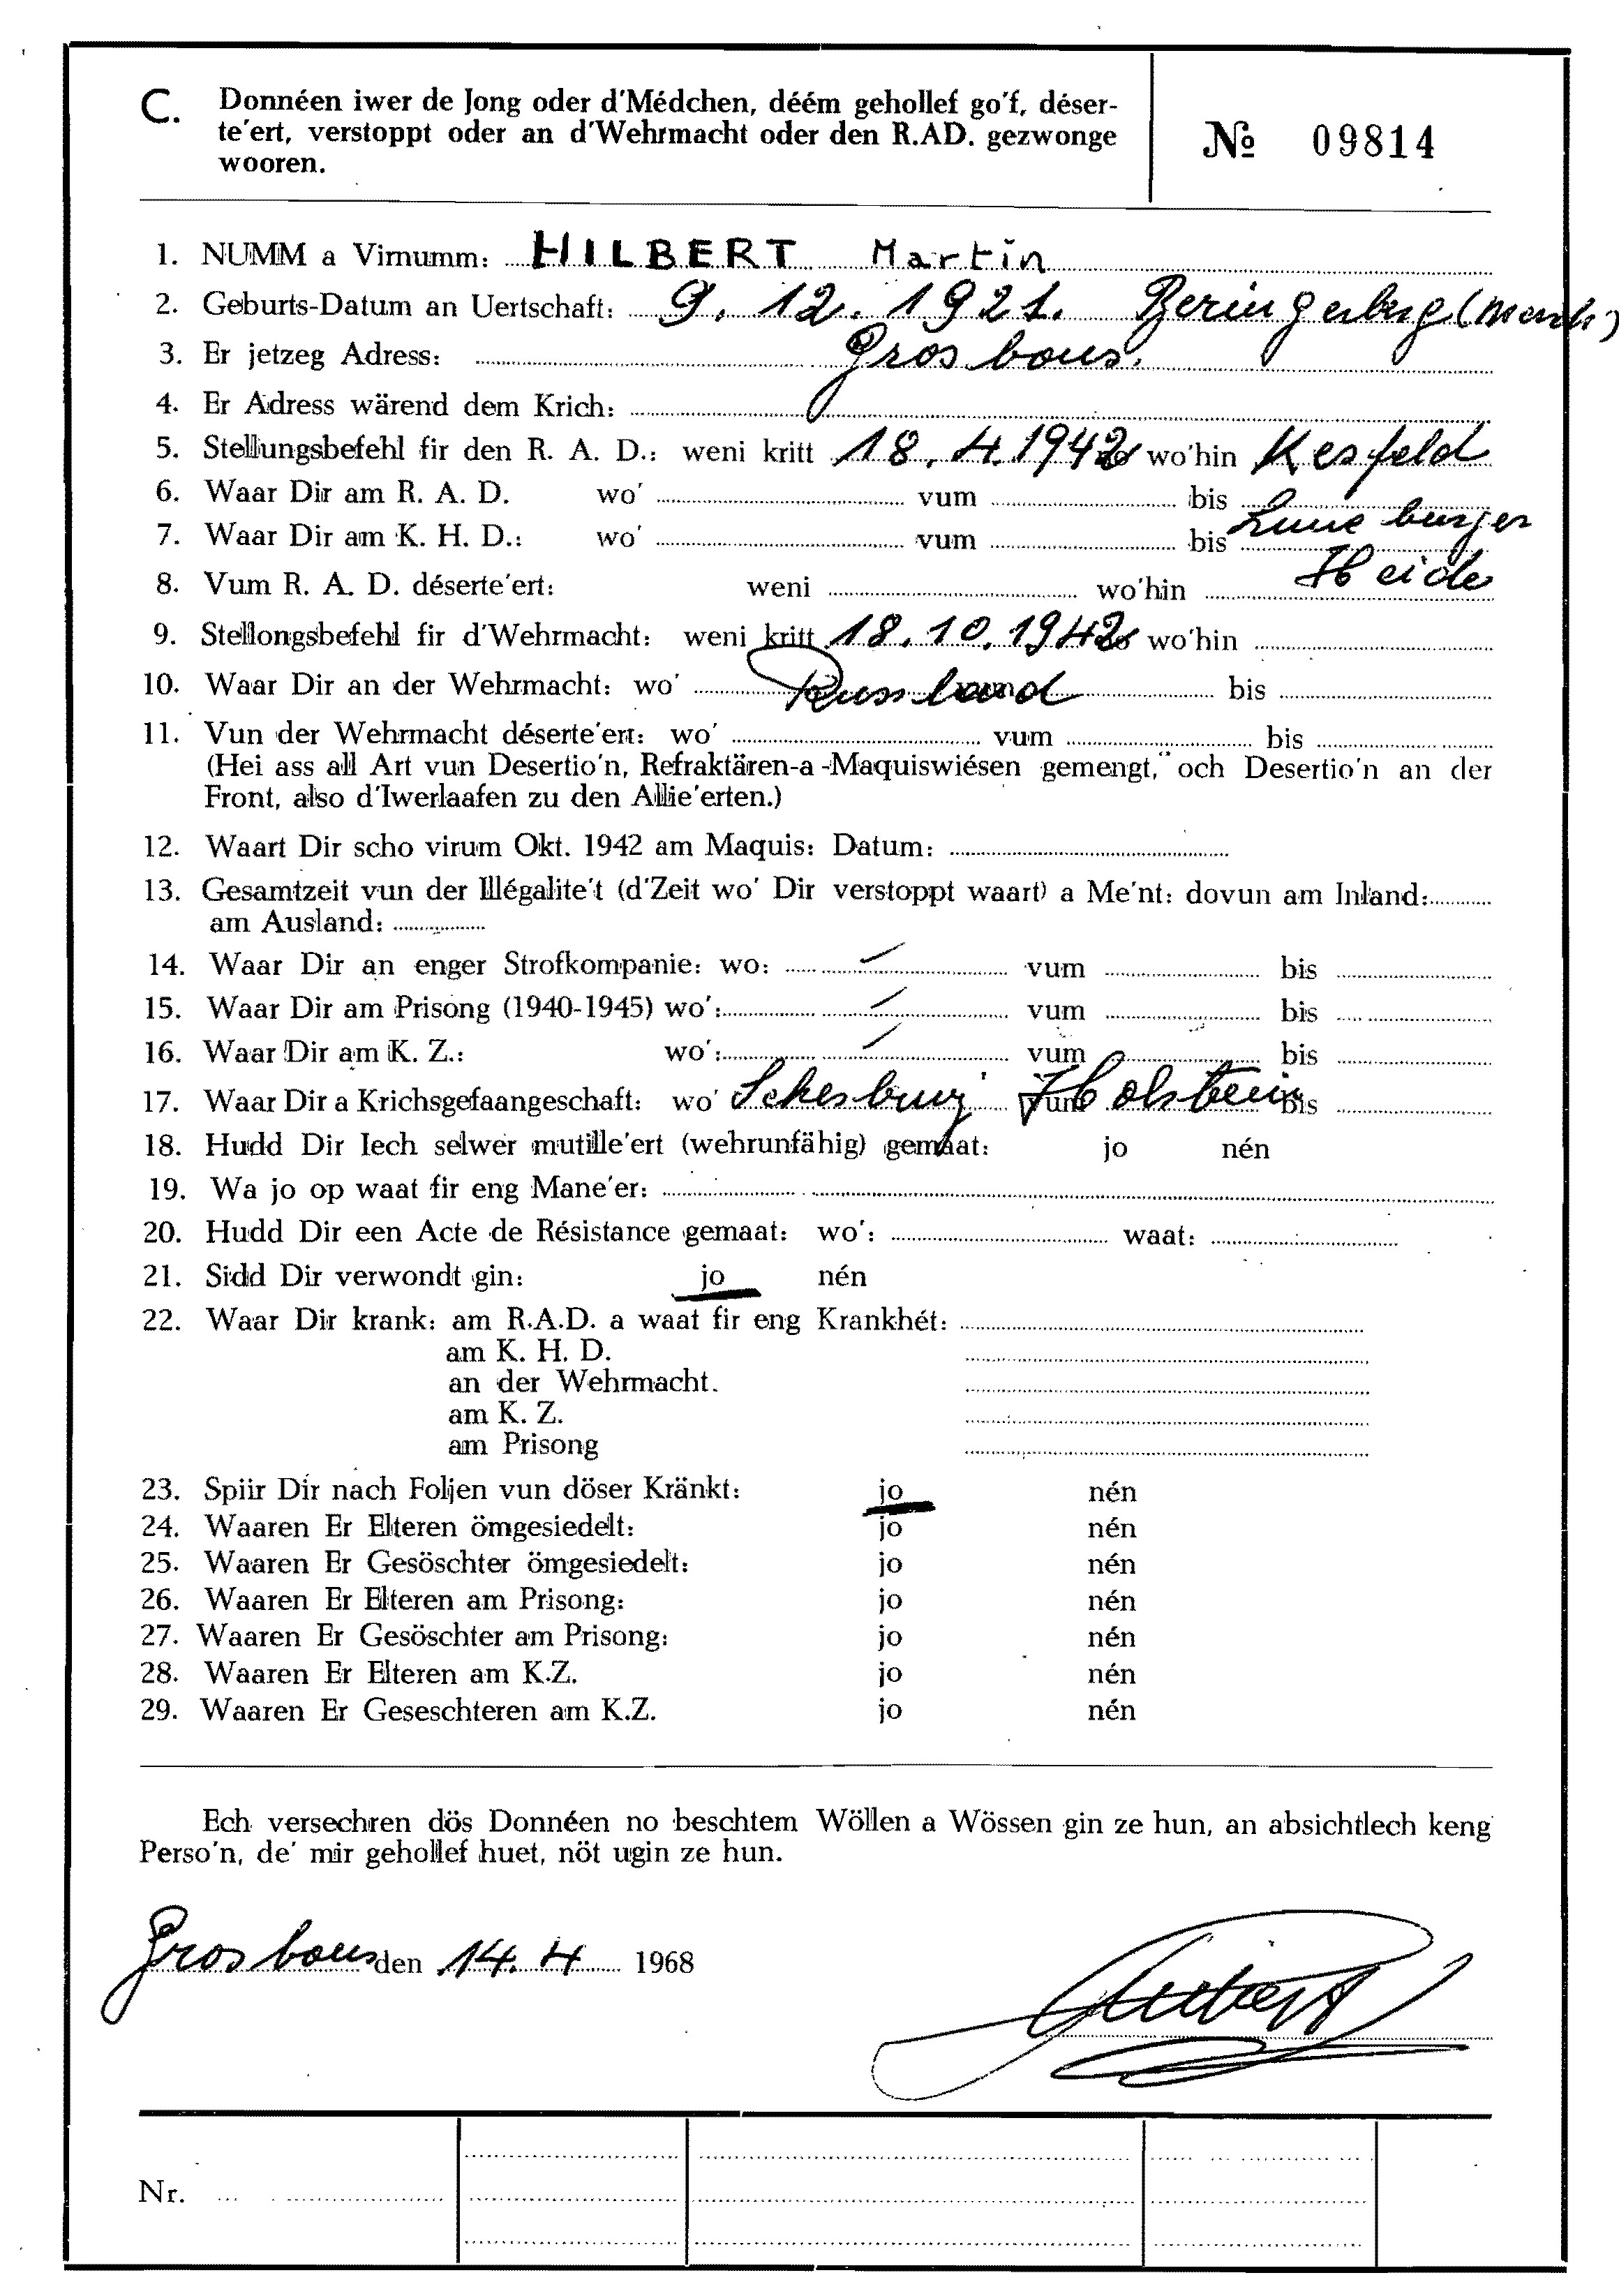 C. Donnéen iwer de Jong oder d'Médchen, déém gehollef go'f, déser-
te'ert, verstoppt oder an d'Wehrmacht oder den R.AD. gezwonge
wooren.
№ 09814
1. NUMM a Virnumm: HILBERT Martin
2. Geburts-Datum an Uertschaft: 9. 12. 1921. Beringerberg (Mersch)
3. Er jetzeg Adress: Grosbous.
4. Er Adress wärend dem Krich:
5. Stellungsbefehl fir den R. A. D.: weni kritt 18. 4. 1942 wo'hin Kesfeld
6. Waar Dir am R. A. D. wo' vum bis Luneburger
7. Waar Dir am K. H. D.: wo' vum bis Heide
8. Vum R. A. D. déserte'ert: weni wo'hin
9. Stellongsbefehl fir d'Wehrmacht: weni kritt 18. 10. 1942 wo'hin
10. Waar Dir an der Wehrmacht: wo' Russland vum bis
11. Vun der Wehrmacht déserte'ert: wo' vum bis
(Hei ass all Art vun Desertio'n, Refraktären-a-Maquiswiésen gemengt, och Desertio'n an der
Front, also d'Iwerlaafen zu den Allie'erten.)
12. Waart Dir scho virum Okt. 1942 am Maquis: Datum:
13. Gesamtzeit vun der Illégalite't (d'Zeit wo' Dir verstoppt waart) a Me'nt: dovun am Inland:
am Ausland:
14. Waar Dir an enger Strofkompanie: wo: / vum bis
15. Waar Dir am Prisong (1940-1945) wo': / vum bis
16. Waar Dir am K. Z.: wo': / vum bis
17. Waar Dir a Krichsgefaangeschaft: wo' vum Holstein bis
18. Hudd Dir Iech selwer mutille'ert (wehrunfähig) gemaat: jo nén
19. Wa jo op waat fir eng Mane'er:
20. Hudd Dir een Acte de Résistance gemaat: wo': waat:
21. Sidd Dir verwondt gin: jo nén
22. Waar Dir krank: am R.A.D. a waat fir eng Krankhét:
am K. H. D.
an der Wehrmacht.
am K. Z.
am Prisong
23. Spiir Dir nach Foljen vun döser Kränkt: jo nén
24. Waaren Er Elteren ömgesiedelt: jo nén
25. Waaren Er Gesöschter ömgesiedelt: jo nén
26. Waaren Er Elteren am Prisong: jo nén
27. Waaren Er Gesöschter am Prisong: jo nén
28. Waaren Er Elteren am K.Z. jo nén
29. Waaren Er Geseschteren am K.Z. jo nén
Ech versechren dös Donnéen no beschtem Wöllen a Wössen gin ze hun, an absichtlech keng
Perso'n, de' mir gehollef huet, nöt ugin ze hun.
Grosbous den 14. 4 1968
Hilbert
Nr.